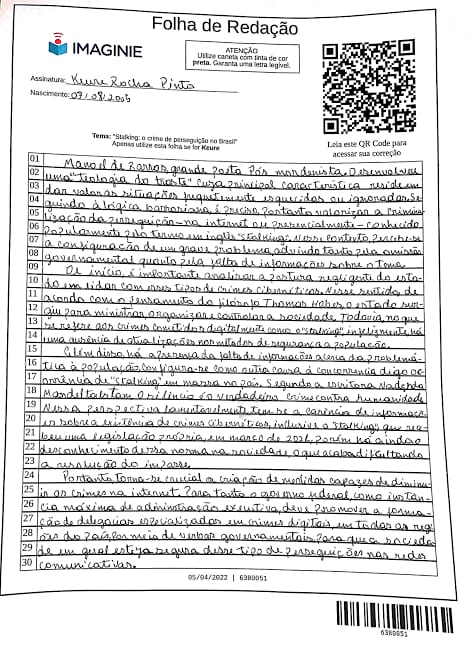 Folha de Redação
IMAGINIE
ATENÇÃO
Utilize caneta com tinta de cor
preta. Garanta uma letra legível.
Assinatura: Keure Rocha Pinto
Nascimento: 07/08/2005
Tema: "Stalking: o crime de perseguição no Brasil"
Apenas utilize esta folha se for Keure
Leia este QR Code para
acessar sua correção
01 Manoel de Barros, grande poeta Pós mordenista. Desenvolveu
02 uma "teologia do traste" cuja principal característica reside em
03 dar valor as situações frequentemente esquecidas ou ignoradas. Se-
04 guindo à lógica barrosiana, é preciso, portanto valorizar a crimina-
05 lização da perseguição na internet ou presencialmente conhecido
06 popularmente pelo termo em inglês "stalking". Nesse contexto, percebe-se
07 a configuração de um grave problema, advindo tanto pela omissão
08 governamental quanto pela falta de informações sobre o tema.
09 De início, é importante analisar a postura negligente do esta-
10 do em lidar com esses tipos de crimes cibernéticos. Nesse sentido, de
11 acordo com o pensamento do filósofo Thomas Hobes, o estado sur-
12 giu para ministrar, organizar e controlar a sociedade. Todavia, no que
13 se refere aos crimes cometidos digitalmente como o "stalking", infelizmente, há
14 uma ausência de atualizações nos métodos de segurança a população.
15 Além disso, há a presença da falta de informações acerca da problemá-
16 tica à população, configura-se como outra causa à concorrencia digo oc-
17 orrência de "stalking" em massa no país. Segundo a escritora Nadezhda
18 Mandelstam O silêncio é o verdadeiro crime contra humanidade
19 Nessa perspectiva lamentavelmente, tem-se a carência de informaçõ-
20 es sobre a existência de crimes cibernéticos, inclusive o "stalking" que rece-
21 beu uma legislação própria, em março de 2021, porém há ainda o
22 desconhecimento dessa norma na sociedade, o que acaba dificultando
23 a resolução do impasse.
24 Portanto, torna-se crucial a criação de medidas capazes de diminu-
25 ir os crimes na internet. Para tanto o governo federal, como instân-
26 cia máxima de administração executiva, deve promover a forma-
27 ção de delegacias especializadas em crimes digitais, em todas as regi-
28 ões do País, por meio de verbas governamentais. Para que a socieda-
29 de em geral esteja segura desse tipo de perseguições nas redes
30 comunicativas.
05/04/2022 | 6380051
6380051